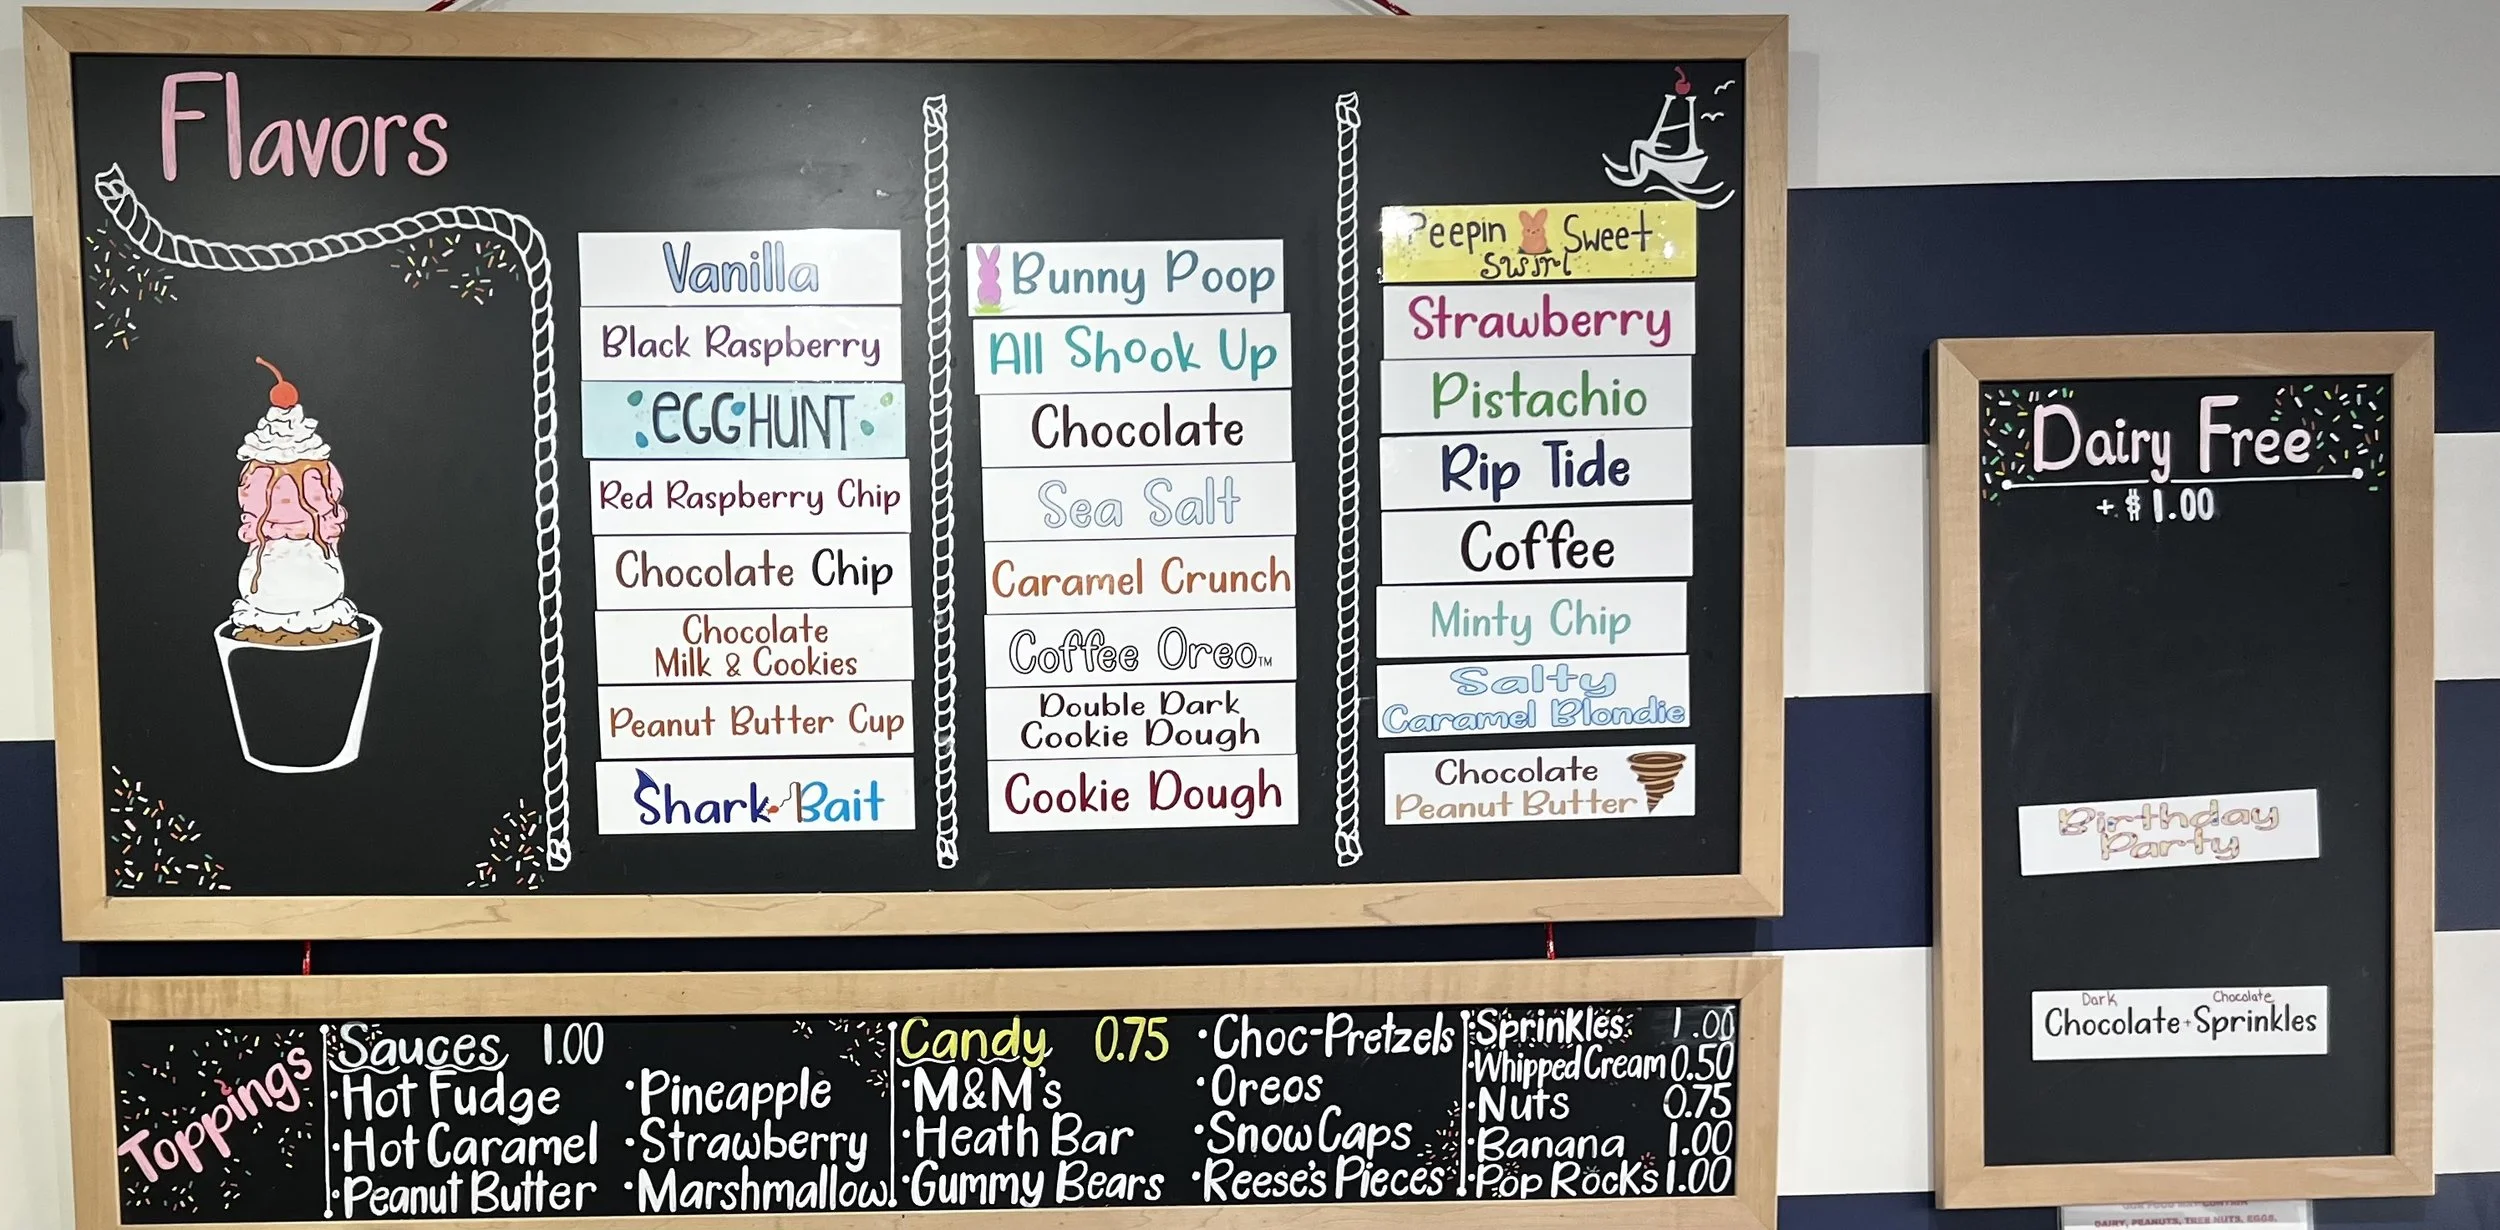 Flavors
Vanilla
Black Raspberry
EGG HUNT
Red Raspberry Chip
Chocolate Chip
Chocolate
Milk & Cookies
Peanut Butter Cup
Shark Bait
Bunny Poop
All Shook Up
Chocolate
Sea Salt
Caramel Crunch
Coffee Oreo™
Double Dark
Cookie Dough
Cookie Dough
Peepin Sweet
Swirl
Strawberry
Pistachio
Rip Tide
Coffee
Minty Chip
Salty
Caramel Blondie
Chocolate
Peanut Butter
Dairy Free
+ $1.00
Birthday
Party
Dark Chocolate
Chocolate + Sprinkles
Toppings
Sauces 1.00
•Hot Fudge
•Hot Caramel
•Peanut Butter
•Pineapple
•Strawberry
•Marshmallow
Candy 0.75
•M&M's
•Heath Bar
•Gummy Bears
•Choc-Pretzels
•Oreos
•Snow Caps
•Reese's Pieces
•Sprinkles 1.00
•Whipped Cream 0.50
•Nuts 0.75
•Banana 1.00
•Pop Rocks 1.00
DAIRY, PEANUTS, TREE NUTS, EGGS,